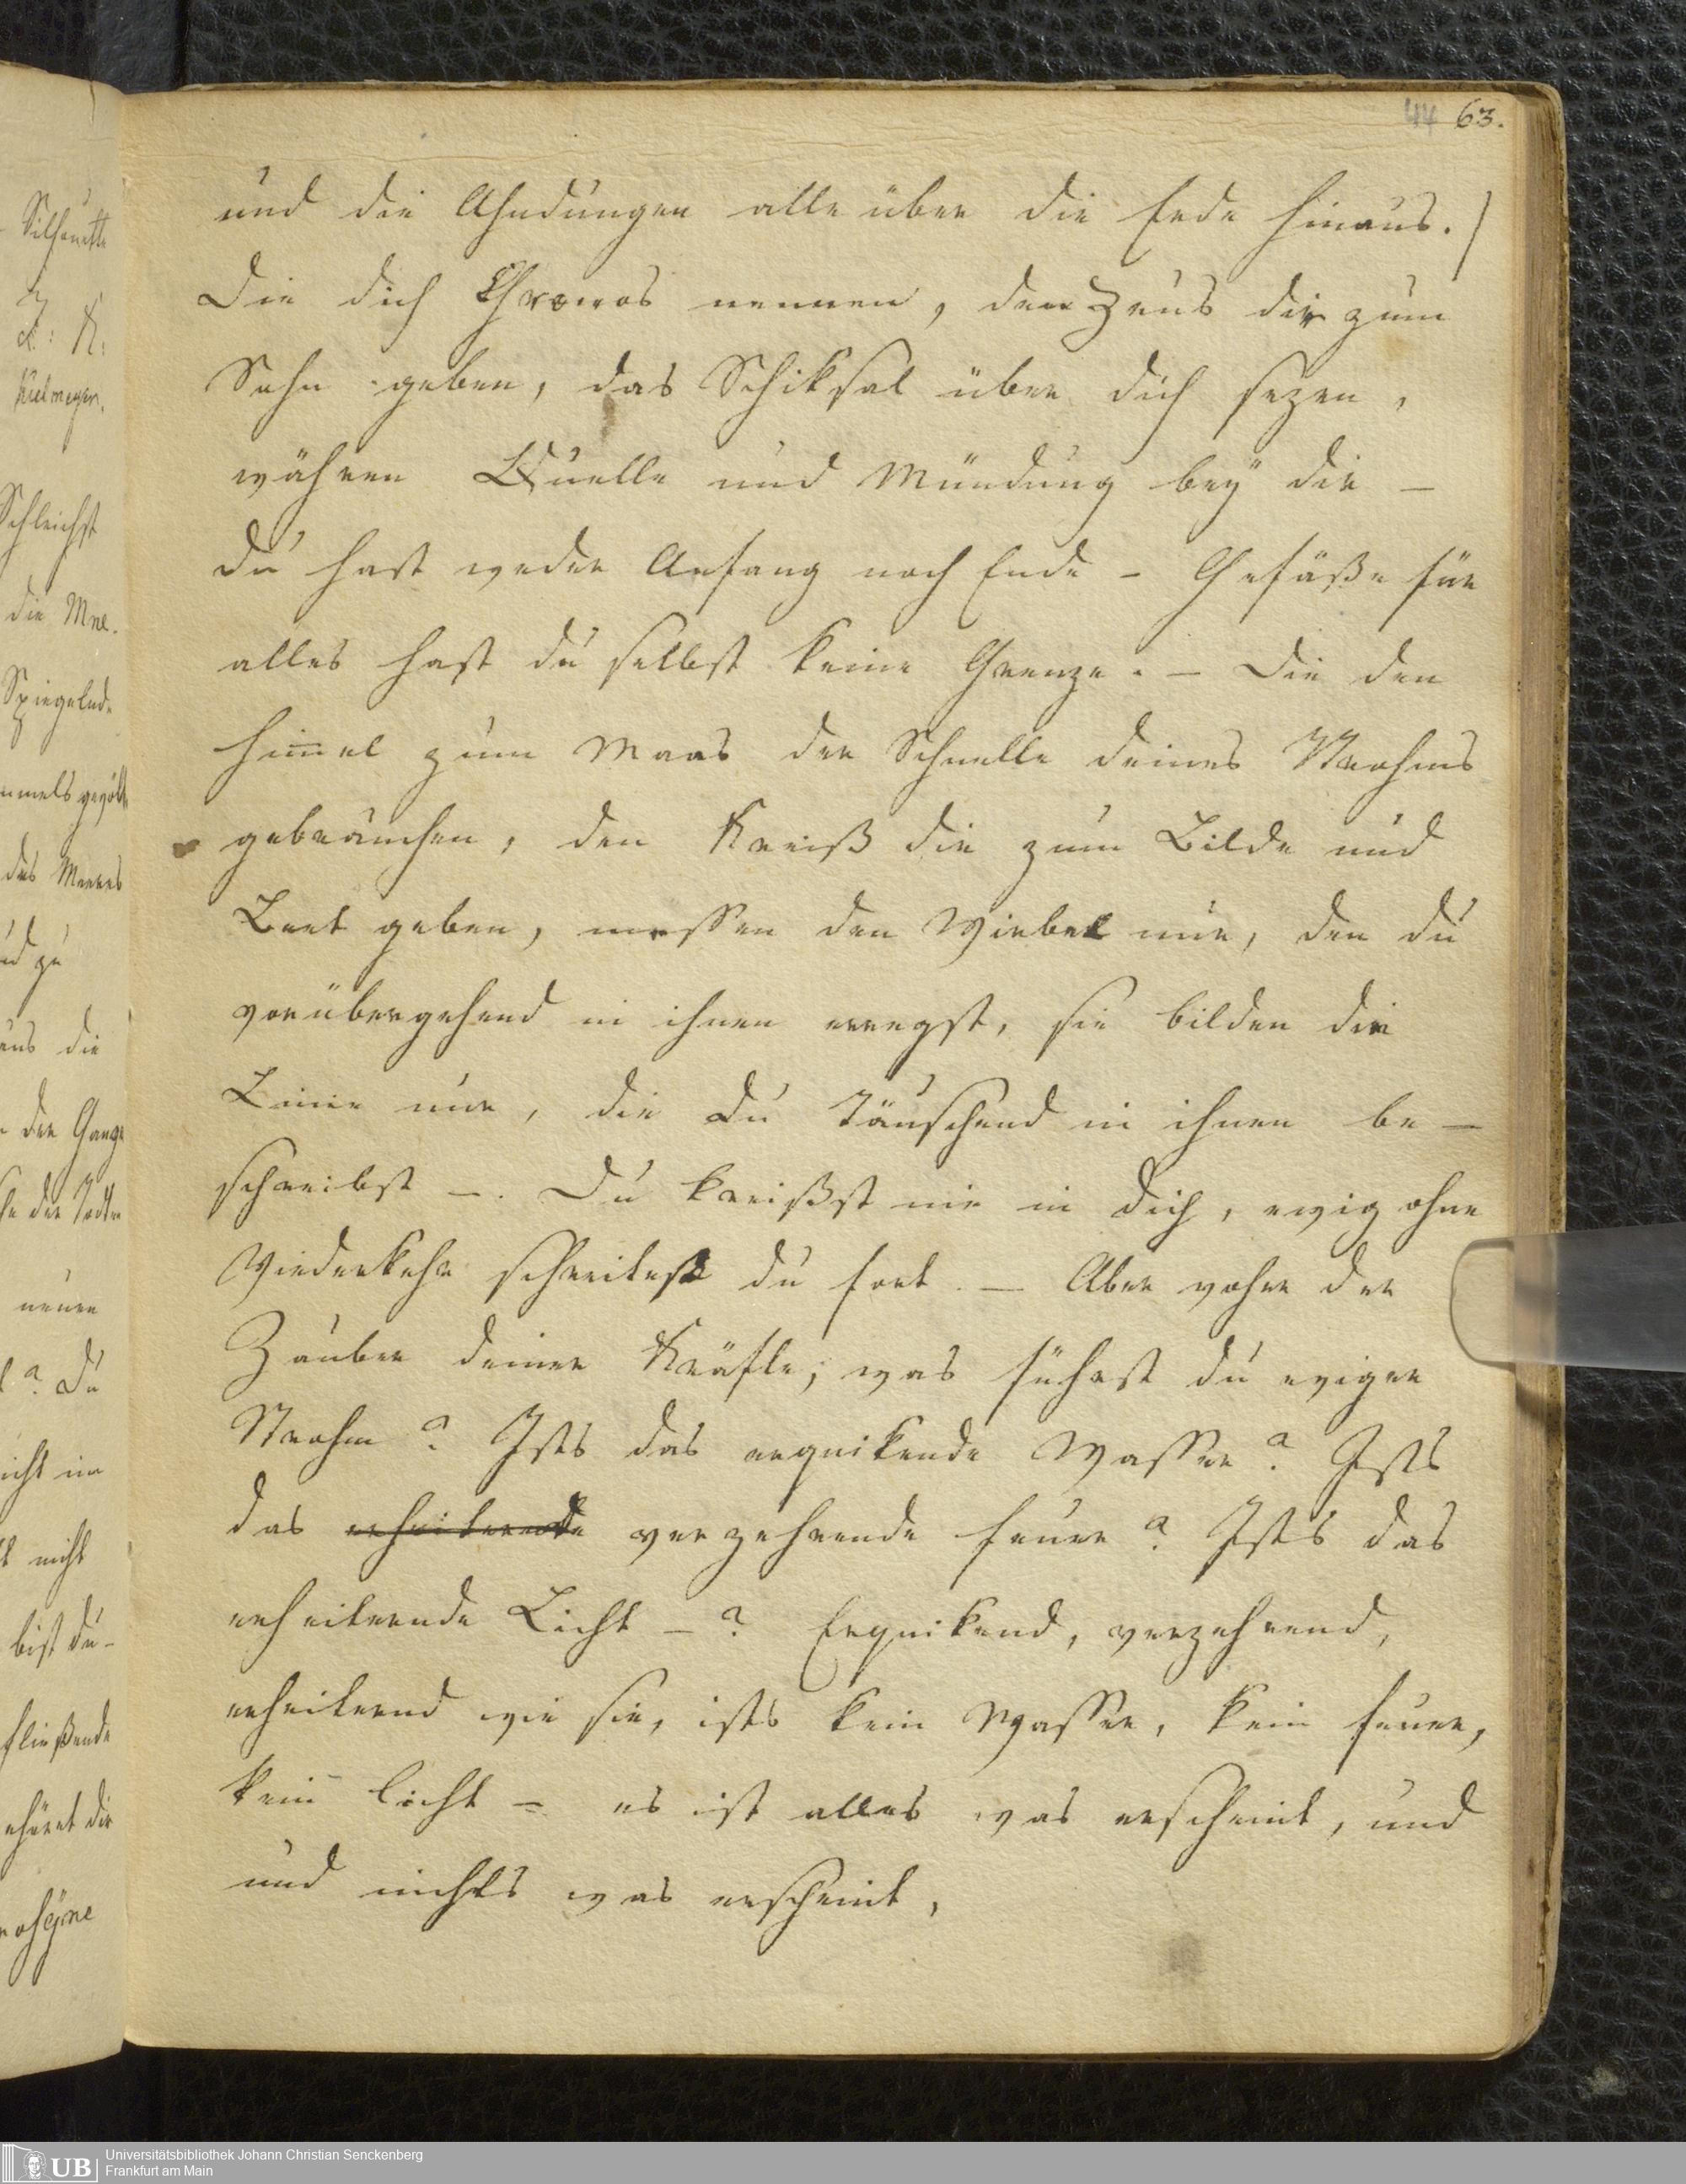 44 63.
und die Ahndungen alle über die Erde hinaus. /
Die dich Chronos nennen, den Zeus dir zum
Sohn geben, das Schiksal über dich sezen,
wähnen Quelle und Mündung bey dir –
du hast weder Anfang noch Ende – Gefäße für
alles hast du selbst keine Grenze. – Die den
Him̅el zum Maas der Schnelle deines Strohms
gebrauchen, den Kreiß dir zum Bilde und
Bett geben, messen den Wirbel nur, den du
vorübergehend in ihnen erregst, sie bilden die
Linie nur, die du täuschend in ihnen be–
schreibst –. Du kreißst nie in dich, ewig ohne
Wiederkehr schreitest du fort. – Aber woher der
Zauber deiner Kräfte; was führst du ewiger
Strohm? Ists das erquikende Wasser? Ists
das erheiternde verzehrende Feuer? Ists das
erheiternde Licht –? Erquikend, verzehrend,
erheiternd wie sie, ists kein Wasser, kein Feuer,
kein Licht – es ist alles was erscheint, und
und nichts was erscheint,
Silhouette
Z
d: K:
Kielmeyer.
Schleichst
die Mne.
Spiegelnde
mmels gewölb
des Meeres
nd zu
aus die
der Gange
der Todten
neuen
? Du
icht im
nicht
bist du–
fließende
ehöret dir
mosyne
UB
Universitätsbibliothek Johann Christian Senckenberg
Frankfurt am Main